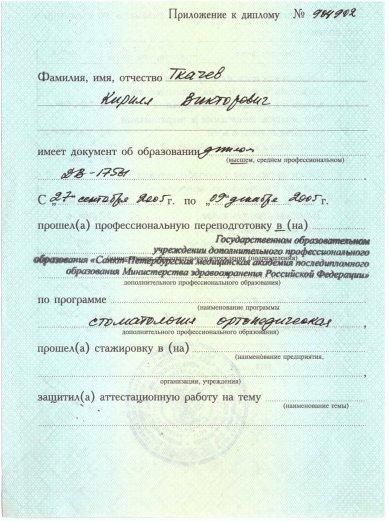 Приложение к диплому № 904902
Фамилия, имя, отчество Ткачев
Кирилл Викторович
имеет документ об образовании диплом
(высшем, среднем профессиональном)
ДВ-17581
С „27“ сентября 2005 г. по „09“ декабря 2005 г.
прошел(а) профессиональную переподготовку в (на)
Государственном образовательном
учреждении дополнительного профессионального
образования «Санкт-Петербургская медицинская академия последипломного
образования Министерства здравоохранения Российской Федерации»
дополнительного профессионального образования)
по программе
(наименование программы
стоматология ортопедическая
дополнительного профессионального образования)
прошел(а) стажировку в (на)
(наименование предприятия,
организации, учреждения)
защитил(а) аттестационную работу на тему
(наименование темы)